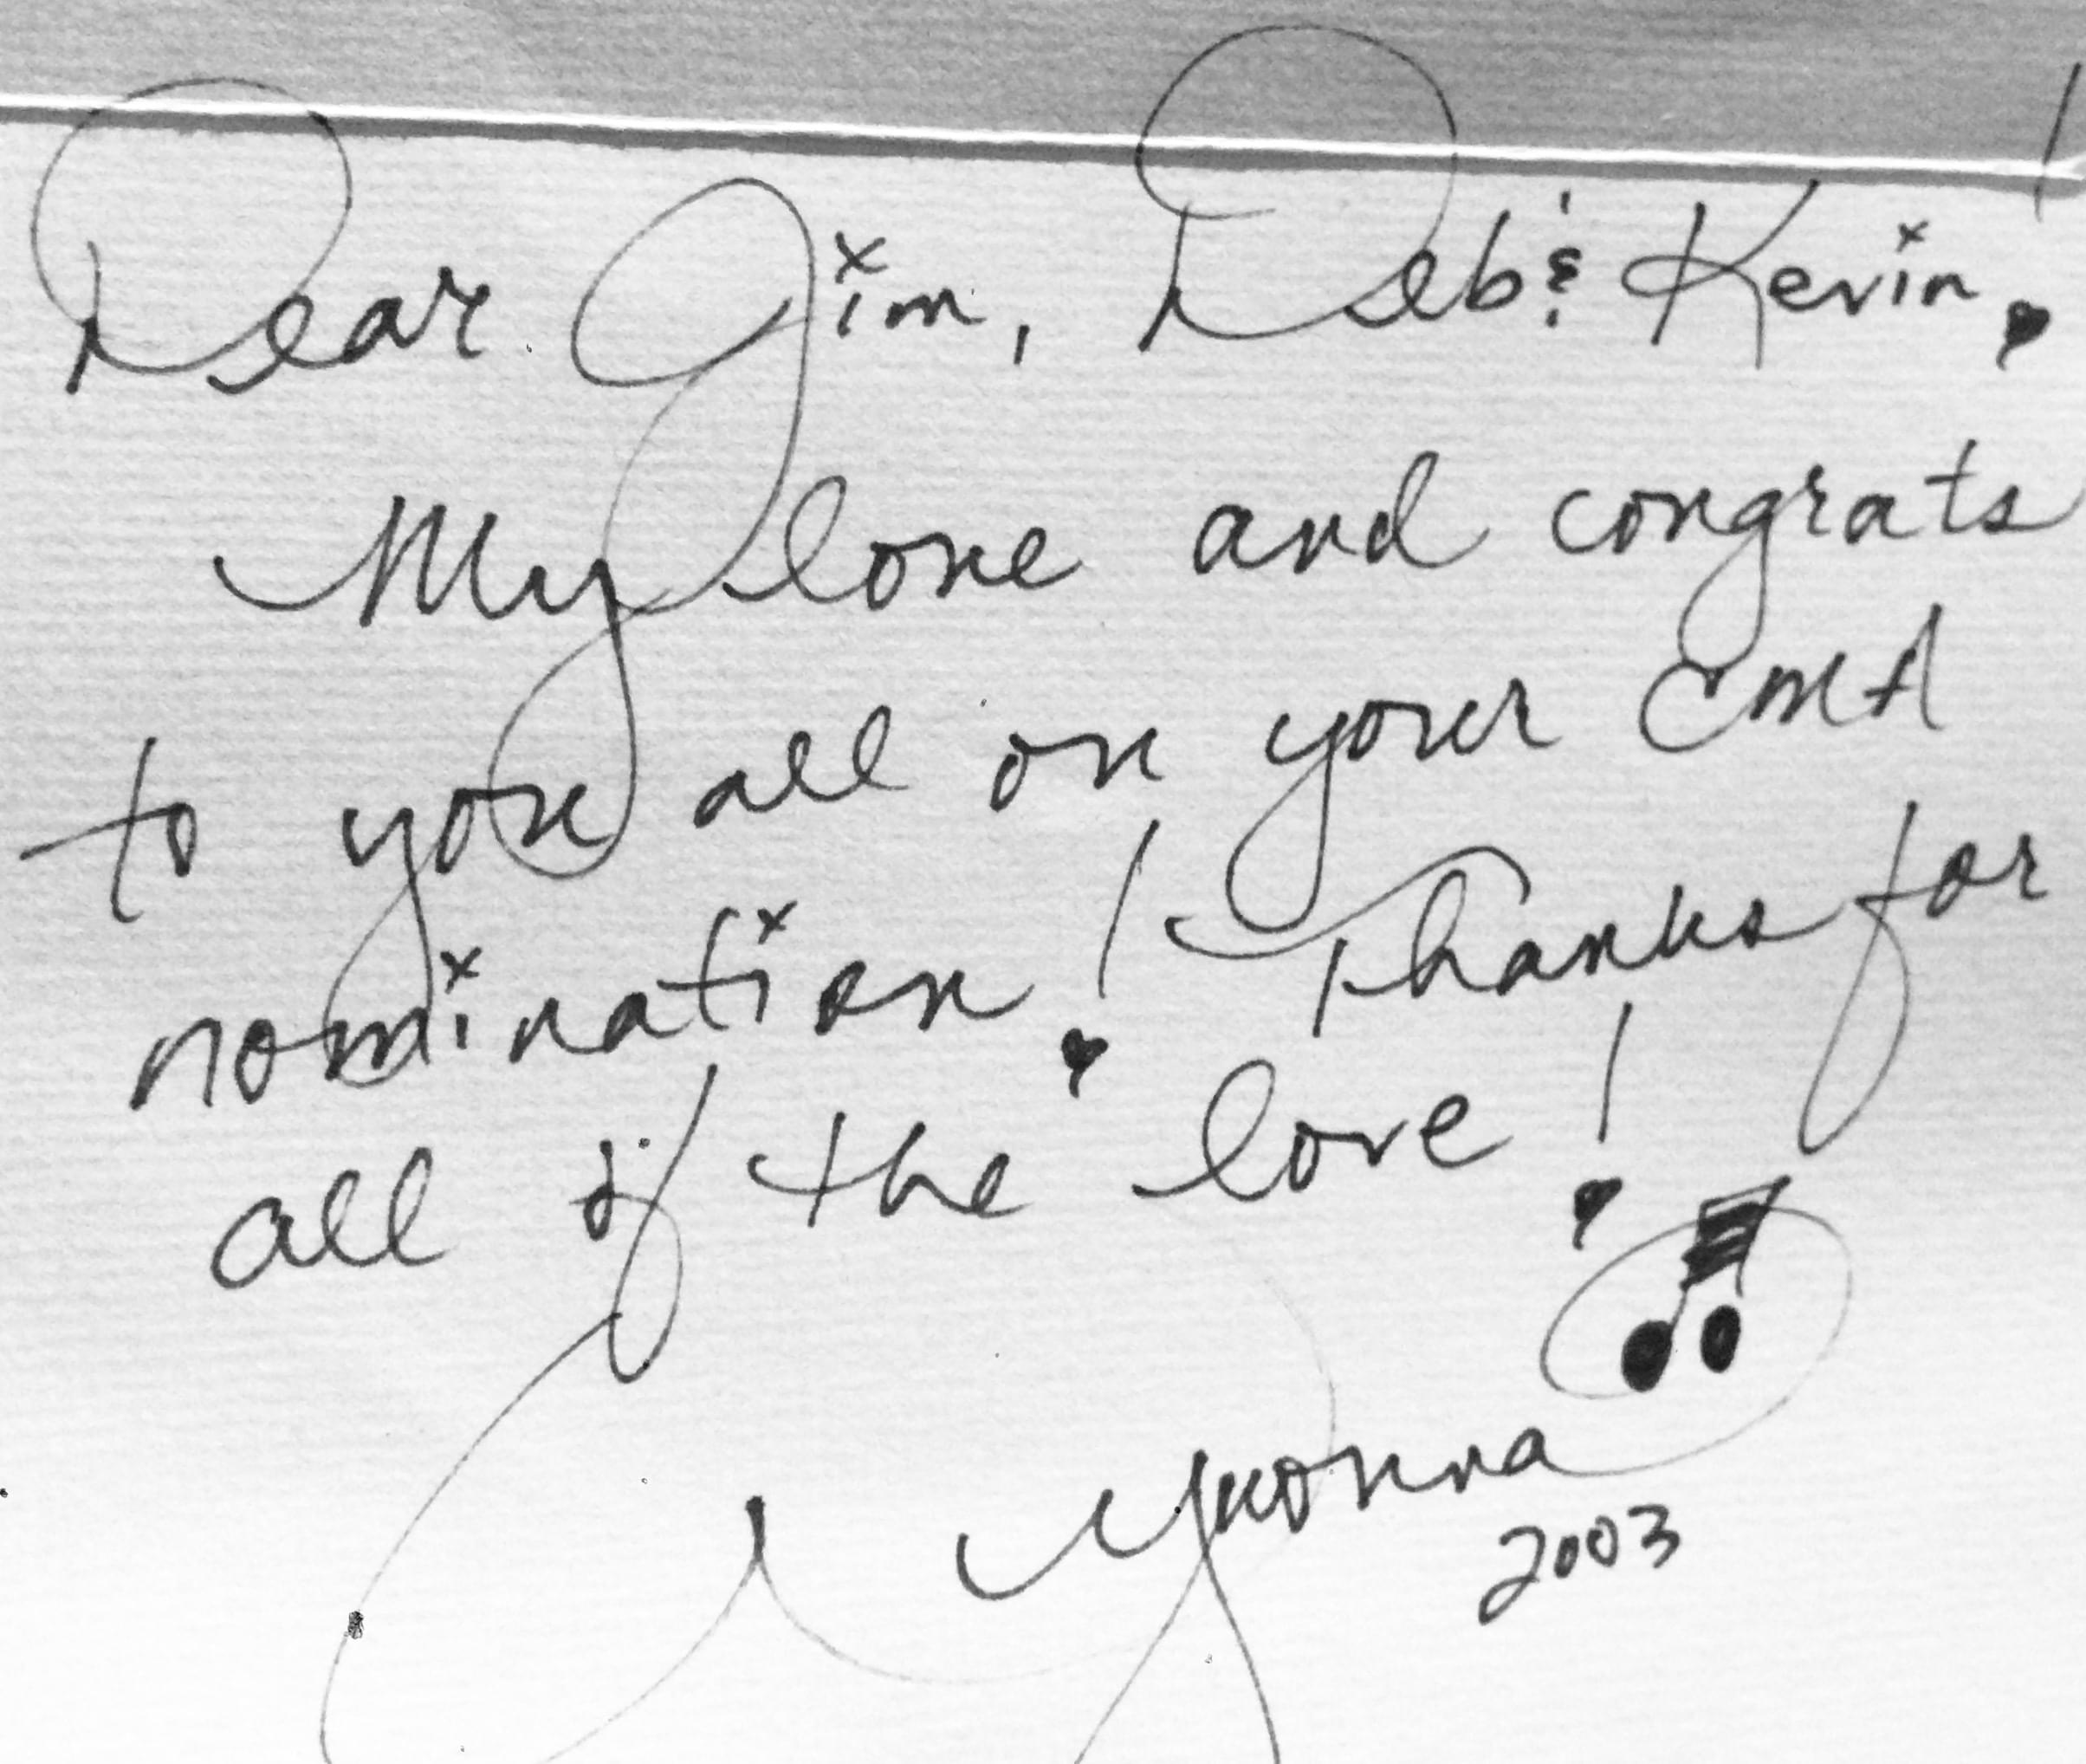 Dear Jim, Deb & Kevin!
My love and congrats
to you all on your CMA
nomination! Thanks for
all of the love!
Yvonna
2003